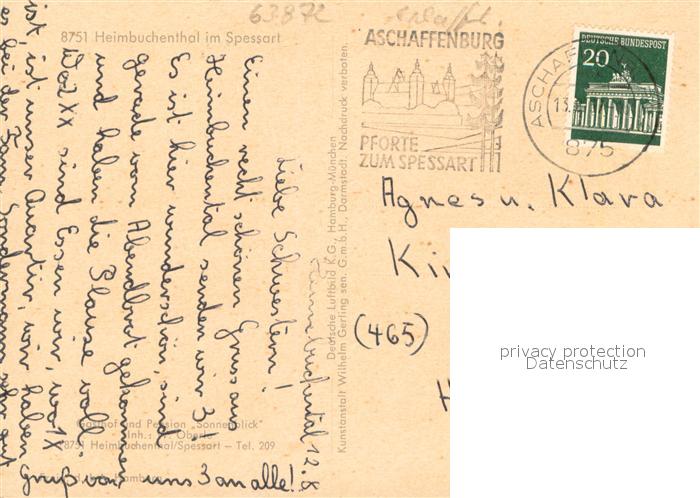 63872
8751 Heimbuchenthal im Spessart
ASCHAFFENBURG
PFORTE
ZUM SPESSART
DEUTSCHE BUNDESPOST
20
ASCHAF
13.
875
Heimbuchental 12.8
Liebe Schwestern!
Einen recht schönen Gruss aus
Heimbuchental senden wir 3!
Es ist hier wunderschön, sind
gerade vom Abendbrot gekommen
und haben die Plause voll.
Wo XX sind Essen wir, wo 1X
ist, ist unser Quartir, wir haben
es bei der Fam. sehr gut
Gruß von uns 3 an alle!
Agnes u. Klara
Ki
(465)
H
Deutsche Luftbild K.G., Hamburg-München
Kunstanstalt Wilhelm Gerling sen. G.m.b.H., Darmstadt. Nachdruck verboten.
Gasthof und Pension „Sonnenblick"
Inh.: Oberle
8751 Heimbuchenthal/Spessart – Tel. 209
privacy protection
Datenschutz